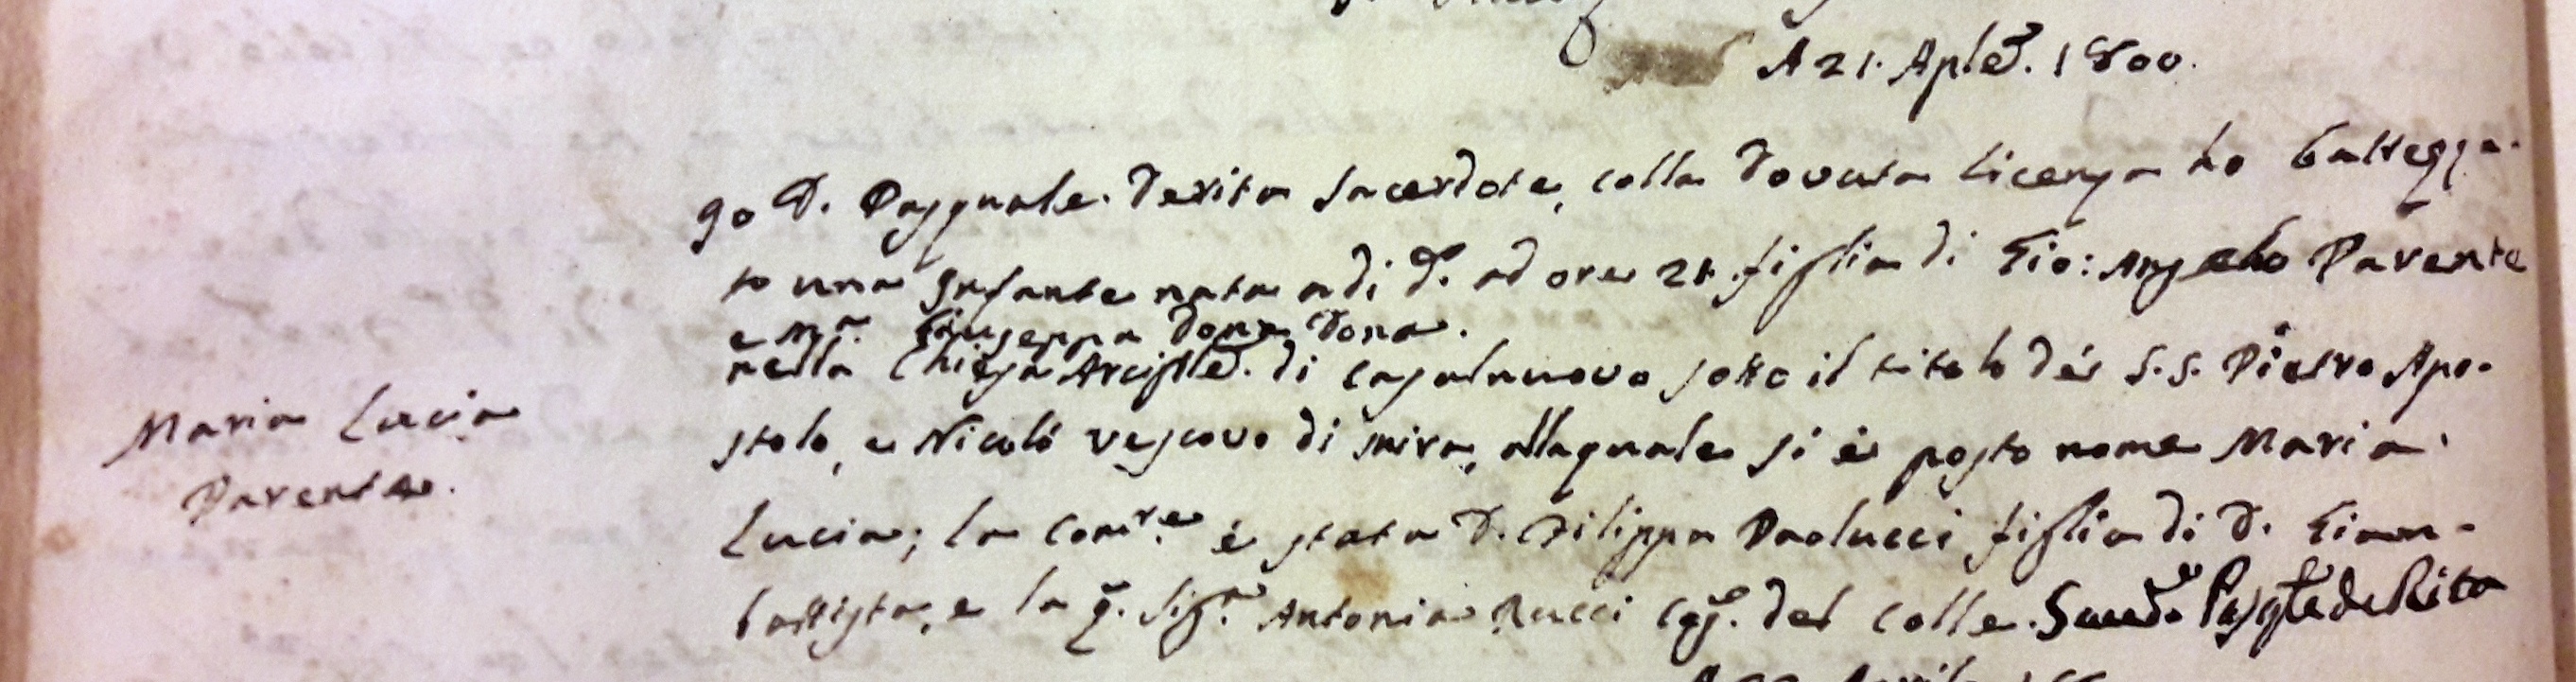 A 21. Aple. 1800.
Io D. Pasquale Derita Sacerdote, colla dovuta licenza ho battezza-
to una Infante nata a dì d.o ad ore 21. figlia di Gio: Angelo Parente
e M.a Giuseppa Dona Dona.
nella Chiesa Arciple. di Casalanuovo sotto il titolo dei S.S. Pietro Apo-
stolo, e Nicolò vescovo di Mira, alla quale si è posto nome Maria
Maria Lucia
Parente.
Lucia; la Com.re è stata D. Filippa Paolucci figlia di D. Giam-
battista, e la q. Sig.ra Antonia Rucci del Colle. Pasqle de Rita